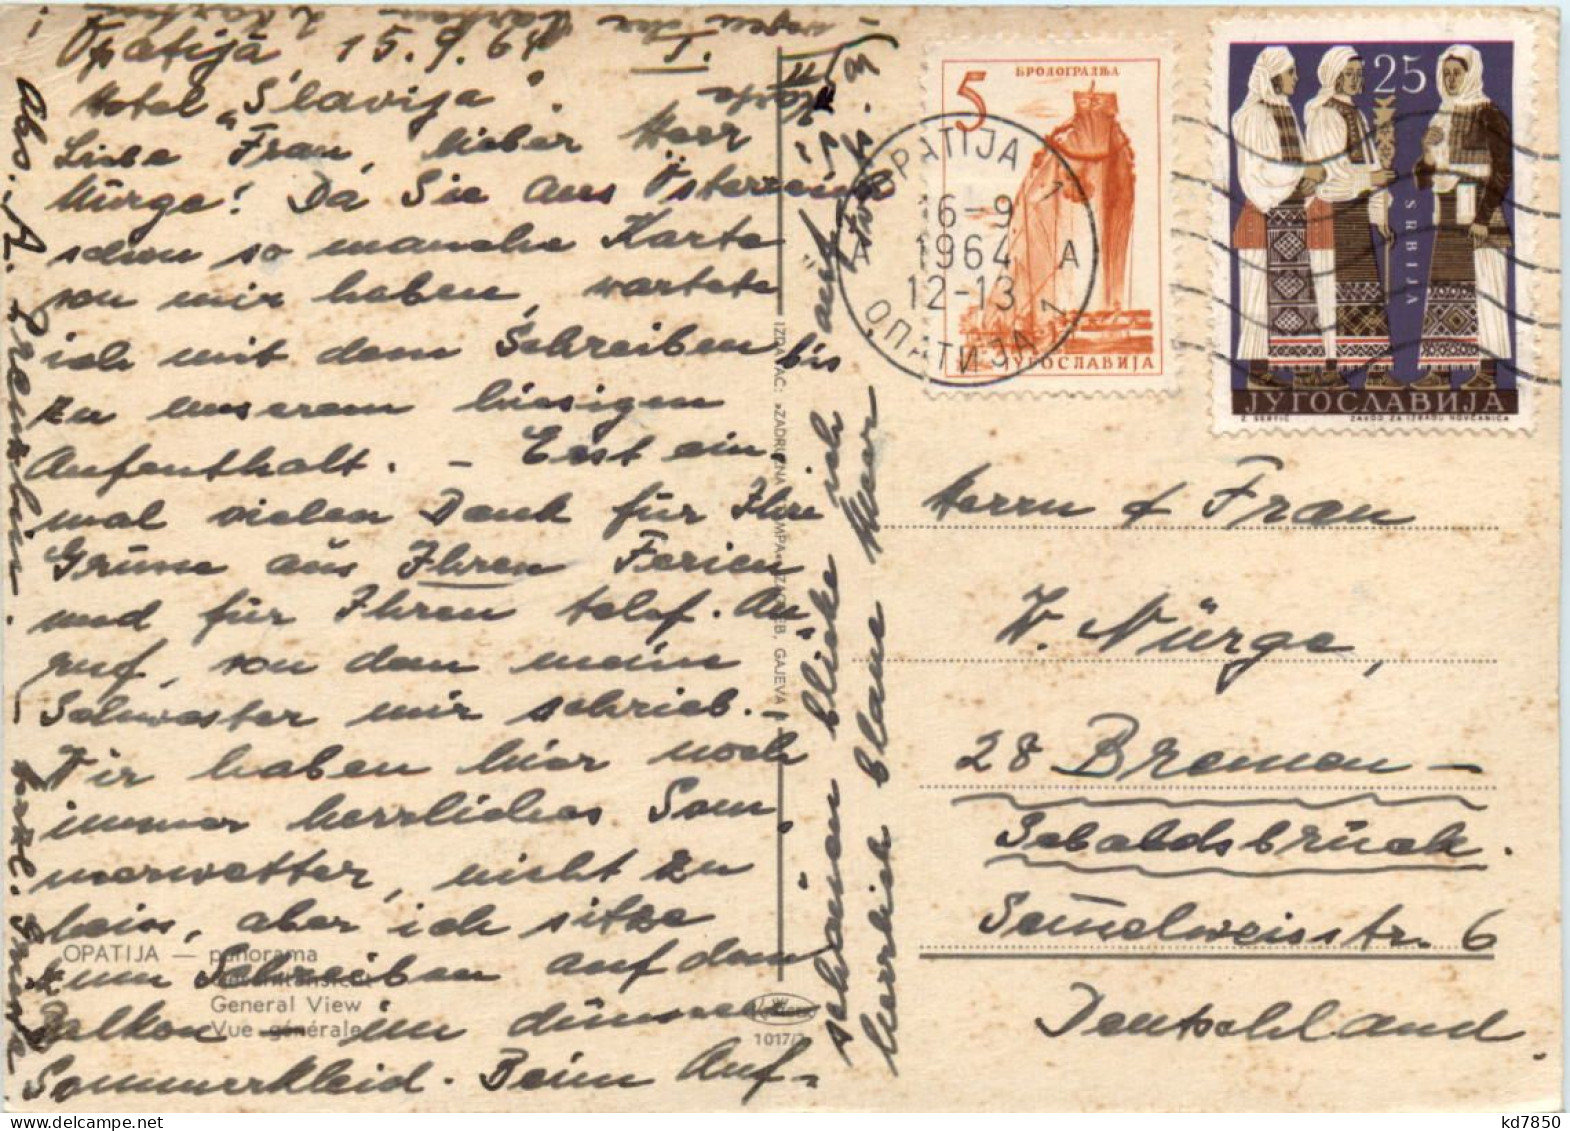 Opatija, 15.9.64
Hotel „Slavija".
I. Karte
Liebe Frau, lieber Herr
Nürge! Da Sie aus Österreich
schon so manche Karte
von mir haben, wartete
ich mit dem Schreiben bis
zu unserem hiesigen
Aufenthalt. – Erst ein-
mal vielen Dank für Ihre
Grüsse aus Ihren Ferien
und für Ihren telef. An-
ruf, von dem meine
Schwester mir schrieb. –
Wir haben hier noch
immer herrliches Som-
merwetter, nicht zu
heiss, aber ich sitze
zum Schreiben auf dem
Balkon – im dünnen
Sommerkleid. Beim Auf-
schauen blicke ich auf
herrlich blaue Meer
Abs. A.
herzl. Grüsse
OPATIJA — panorama
General View
Vue générale
1017/
IZDAVAČ: »ZADRUŽNA ŠTAMPA« ZAGREB, GAJEVA
5
БРОДОГРАДЊА
ЈУГОСЛАВИЈА
25
SRBIJA
ЈУГОСЛАВИЈА
ZAVOD ZA IZRADU NOVČANICA
OPATIJA 1
16-9
1964
12-13
A A
ОПАТИЈА 1
Herrn & Frau
W. Nürge,
28 Bremen –
Sebaldsbrück.
Semmelweisstr. 6
Deutschland.
kd7850